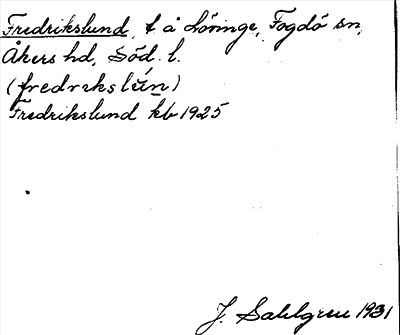 Fredrikslund, t å Löringe, Fogdö sn,
Åkers hd, Söd. l.
(fredrɪkslún)
Fredrikslund kb 1925
J. Sahlgren 1931